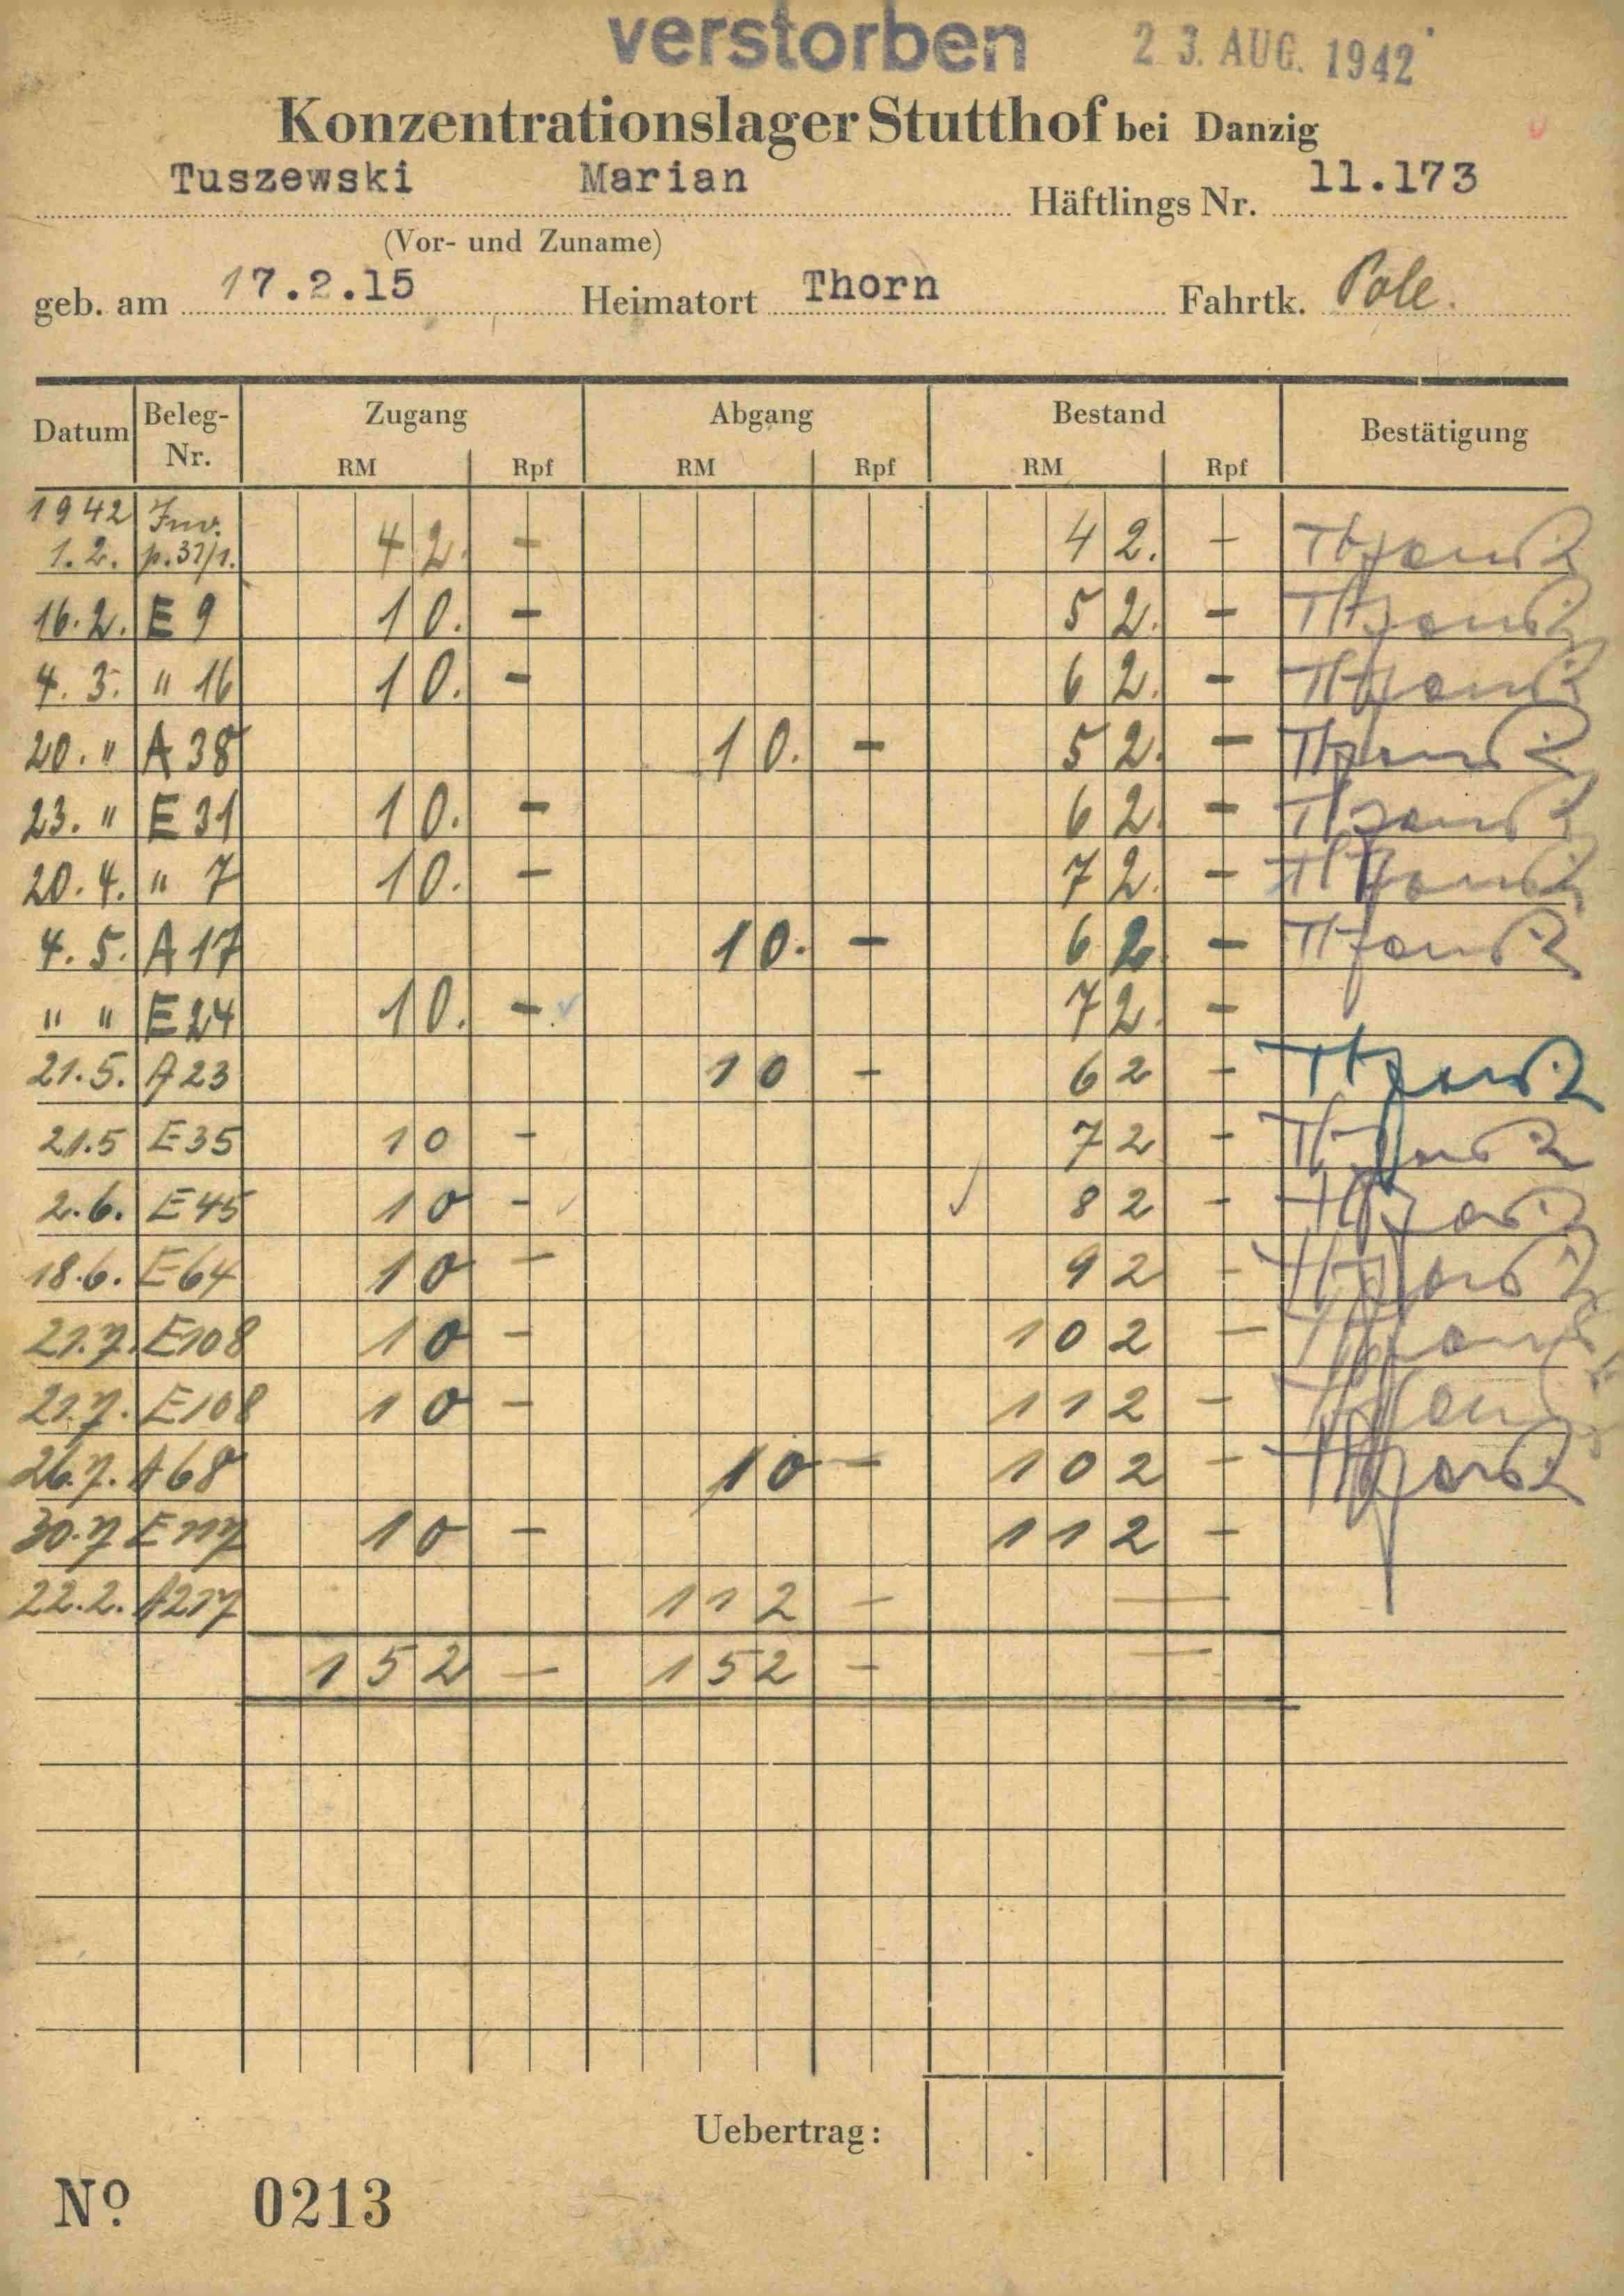 verstorben 23. AUG. 1942
Konzentrationslager Stutthof bei Danzig
Tuszewski Marian Häftlings Nr. 11.173
(Vor- und Zuname)
geb. am 17.2.15 Heimatort Thorn Fahrtk. Pole.
Datum Beleg-Nr. Zugang Abgang Bestand Bestätigung
RM Rpf RM Rpf RM Rpf
1942 Inv.
1.2. p.37/1. 42. - 42. -
16.2. E 9 10. - 52. -
4. 3. " 16 10. - 62. -
20. " A 38 10. - 52. -
23. " E 31 10. - 62. -
20. 4. " 7 10. - 72. -
4. 5. A 17 10. - 62 -
" " E 24 10. - 72. -
21.5. A 23 10 - 62 -
21.5 E 35 10 - 72 -
2.6. E 45 10 - 82 -
18.6. E 64 10 - 92 -
21.7. E 108 10 - 102 -
21.7. E 108 10 - 112 -
26.7. A 68 10 - 102 -
30.7 E 117 10 - 112 -
22.2. A 217 112 - —
152 - 152 - —
Uebertrag:
No 0213